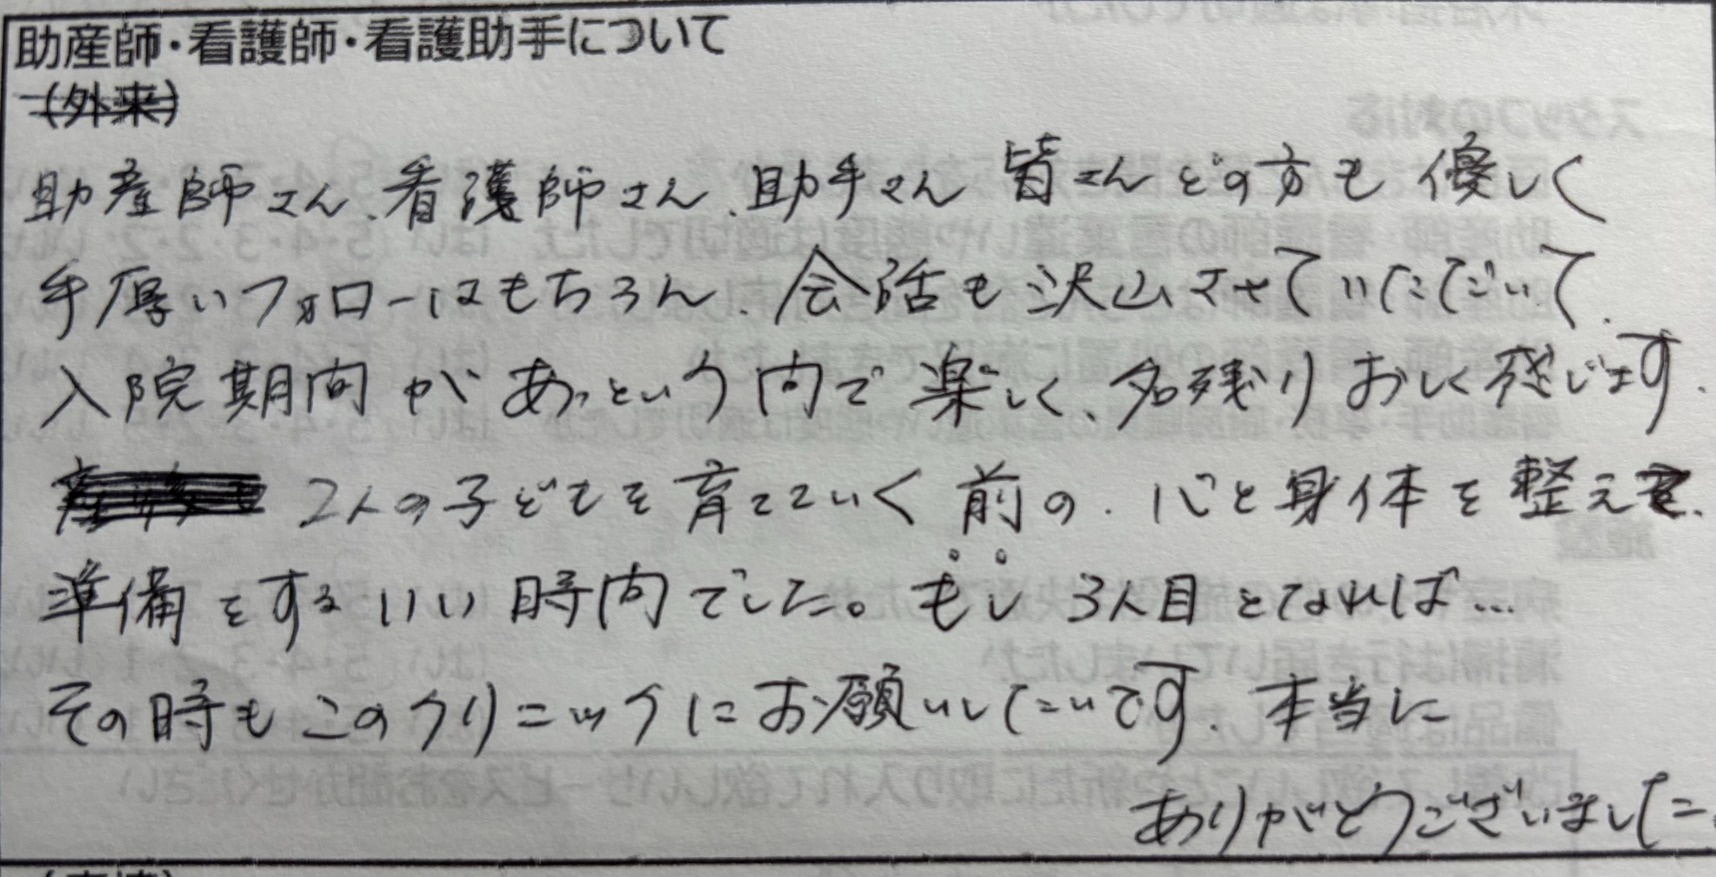 助産師・看護師・看護助手について
(外来)
助産師さん、看護師さん、助手さん 皆さんどの方も優しく
手厚いフォローはもちろん、会話も沢山させていただいて、
入院期間があっという間で楽しく、名残りおしく感じます。
2人の子どもを育てていく前の、心と身体を整えて、
準備をするいい時間でした。もし3人目となれば…
その時もこのクリニックにお願いしたいです。本当に
ありがとうございました。